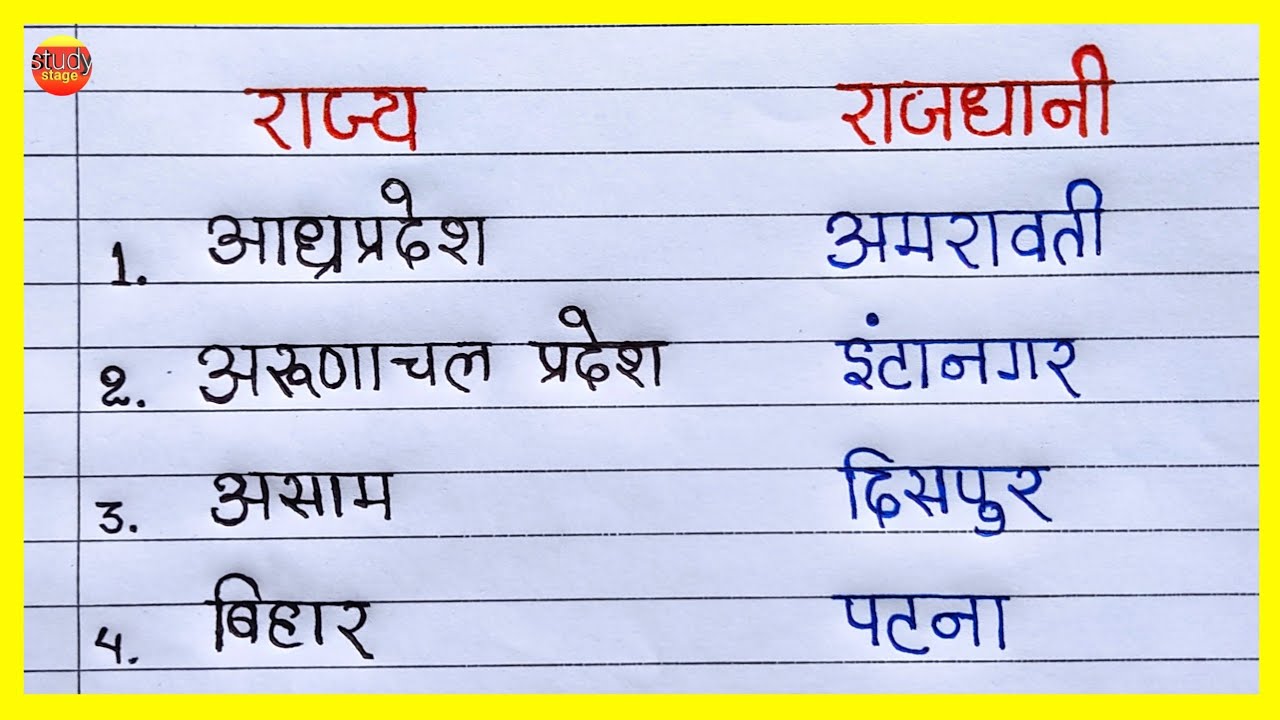 study
stage
राज्य राजधानी
1. आध्रप्रदेश अमरावती
2. अरूणाचल प्रदेश इंटानगर
3. असाम दिसपुर
4. बिहार पटना